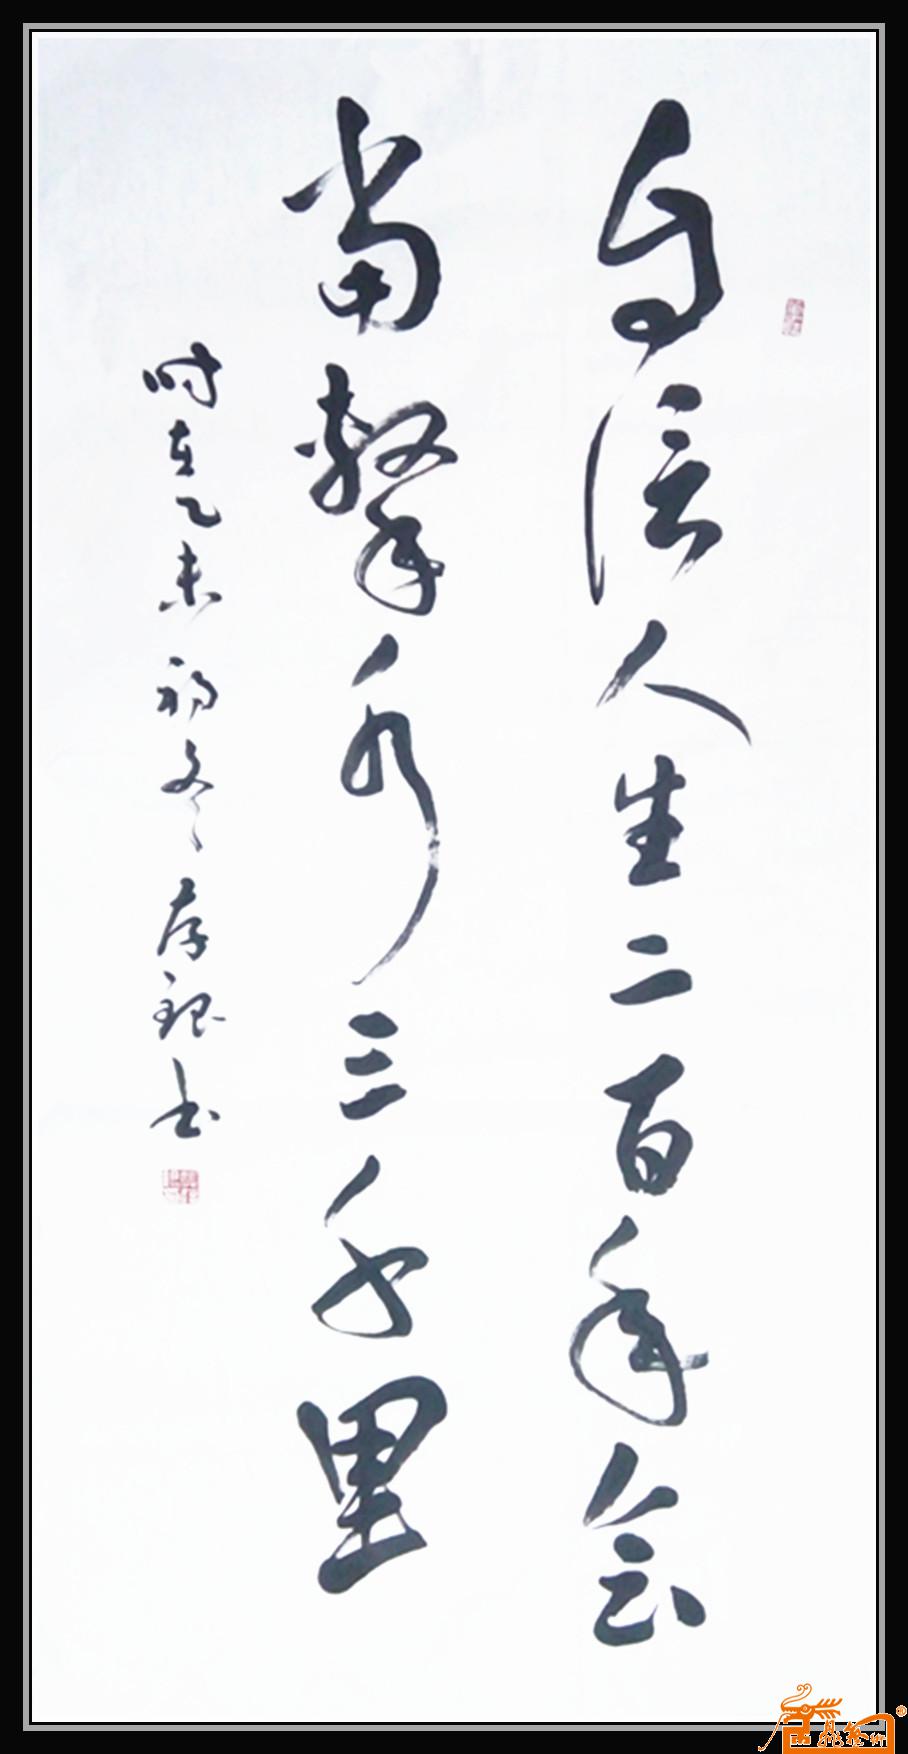 自信人生二百年会
当击水三千里
时在乙未初冬存银书